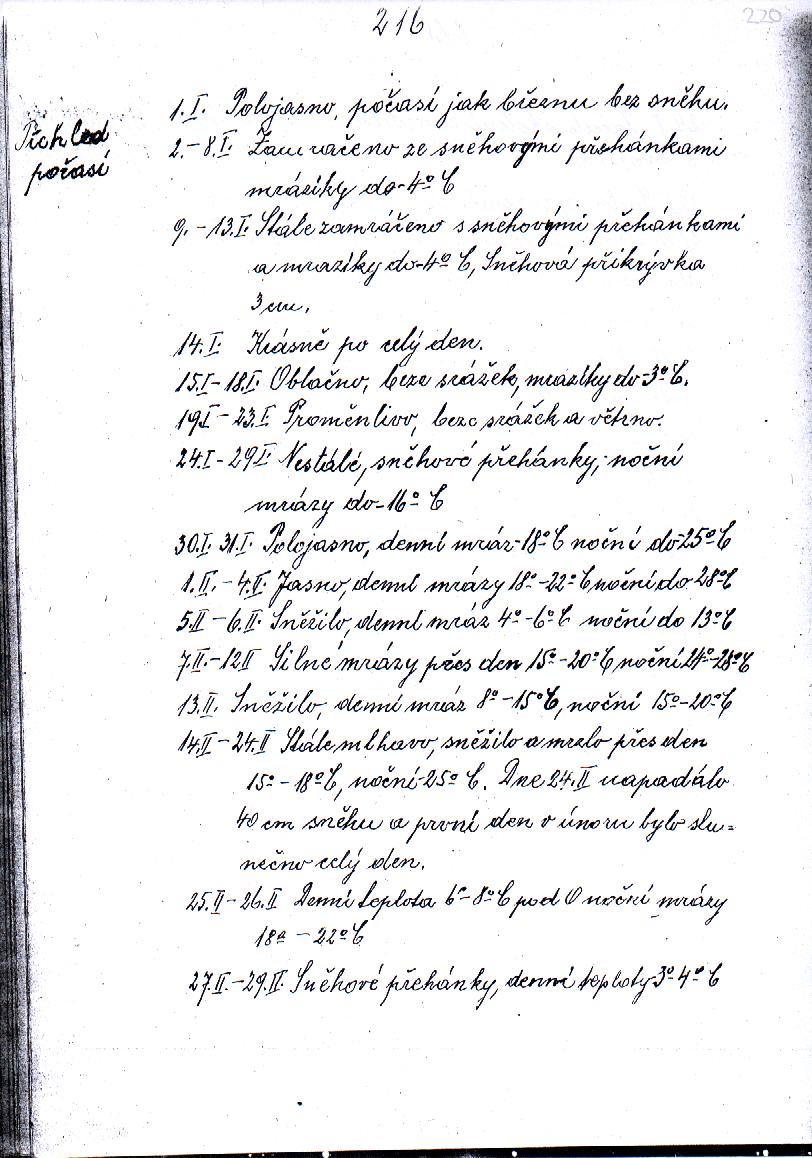 216
220
Přehled
počasí
1.I. Polojasno, počasí jak březnu bez sněhu.
2.-8.I. Zamračeno ze sněhovými přehánkami
mrazíky do -4° C
9.-13.I. Stále zamráčeno s sněhovými přehánkami
a mrazíky do -4° C, Sněhová přikrývka
3 cm.
14.I. Krásně po celý den.
15.I-18.I. Oblačno, beze srážek, mrazíky do -3° C.
19.I-23.I. Proměnlivo, beze srážek a větrno.
24.I-29.I. Nestálé, sněhové přehánky, noční
mrázy do -16° C
30.I. 31.I. Polojasno, denní mráz -18° C noční do -25° C
1.II.-4.II. Jasno, denní mrázy 18°-22° C noční do 28° C
5.II-6.II. Sněžilo, denní mráz 4°-6° C noční do 13° C
7.II.-12.II Silné mrázy přes den 15°-20° C noční 24°-28° C
13.II. Sněžilo, denní mráz 8°-15° C, noční 15°-20° C
14.II-24.II Stále mlhavo, sněžilo a mrzlo přes den
15°-18° C, noční -25° C. Dne 24.II napadálo
40 cm sněhu a první den v únoru bylo slu=
nečno celý den.
25.II-26.II Denní teplota 6°-8° C pod 0 noční mrázy
18° - 22° C
27.II.-29.II. Sněhové přehánky, denní teploty -3° 4° C